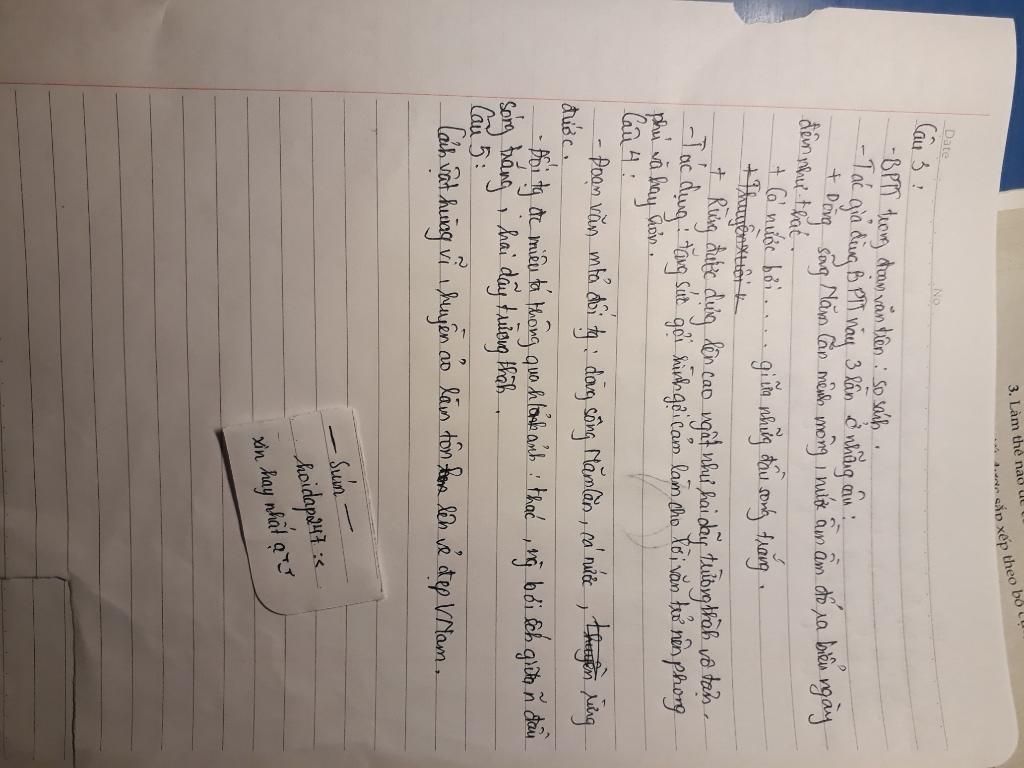 Date
No
Câu 3:
- BPTT trong đoạn văn trên: so sánh.
- Tác giả dùng BPTT này 3 lần ở những câu:
+ Dòng sông Năm Căn mênh mông, nước ầm ầm đổ ra biển ngày
đêm như thác.
+ Cá nước bơi .... giữa những đầu sóng trắng.
+ Rừng đước dựng lên cao ngất như hai dãy trường thành vô tận.
- Tác dụng: tăng sức gợi hình gợi cảm làm cho lời văn trở nên phong
phú và hay hơn.
Câu 4:
- Đoạn văn mtả đối tg: dòng sông Năm Căn, cá nước, rừng
đước.
- Đối tg đc miêu tả thông qua h ảnh: thác, ng bơi ếch giữa n đầu
sóng trắng, hai dãy trường thành.
Câu 5:
Cảnh vật hùng vĩ, huyền ảo làm tôn lên vẻ đẹp VNam.
— Sứn —
hoidap247 :<
xin hay nhất ạ
3. Làm thế nào để
sắp xếp theo bố